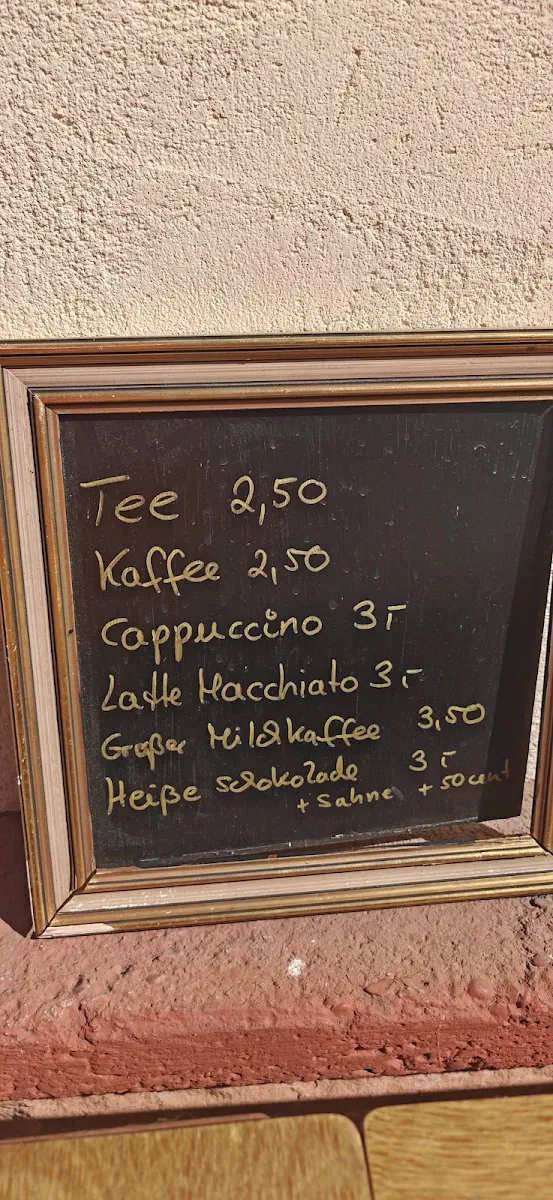 Tee 2,50
Kaffee 2,50
Cappuccino 3,-
Latte Macchiato 3,-
Großer Milchkaffee 3,50
Heiße Schokolade 3,-
+ Sahne + 50 cent